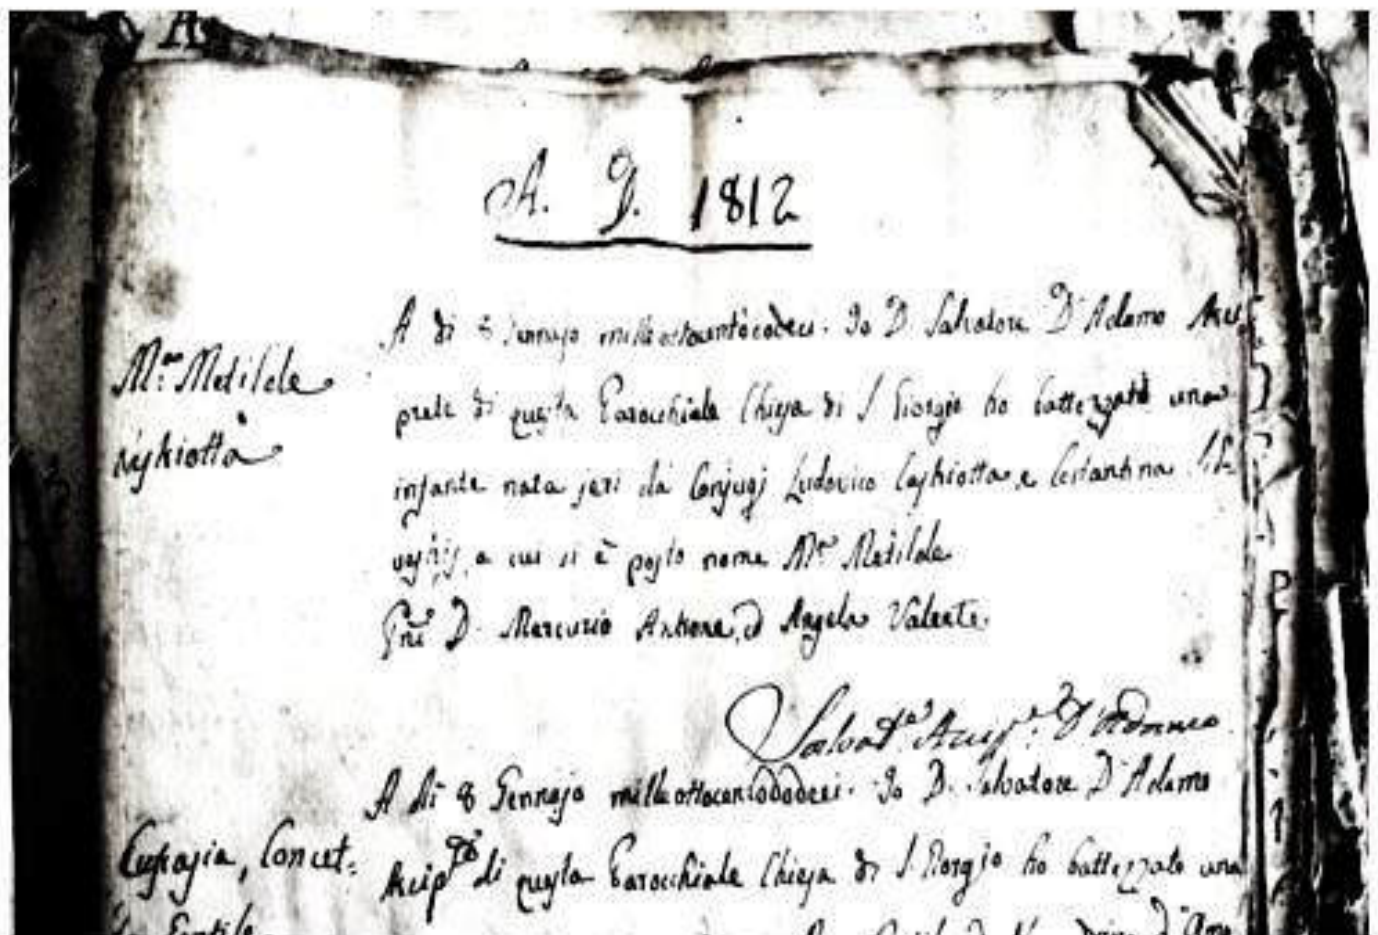 A. D. 1812
M.ª Metilde
A dì 8 Gennajo milleottocentododeci. Io D. Salvatore D'Adamo Arci
prete di questa Parocchiale Chiesa di S Giorgio ho battezzato una
infante nata jeri da Conjugj Ludovico e Costantina
a cui si è posto nome M.ª Metilde
D. Mercurio Antrone, d Angela Valente.
Salvat.e Arcip.e D'Adamo
A dì 8 Gennajo milleottocentododeci. Io D. Salvatore D'Adamo
Eufrasia, Concet:
Arcip.te di questa Parocchiale Chiesa di S Giorgio ho battezzato una
Gentile